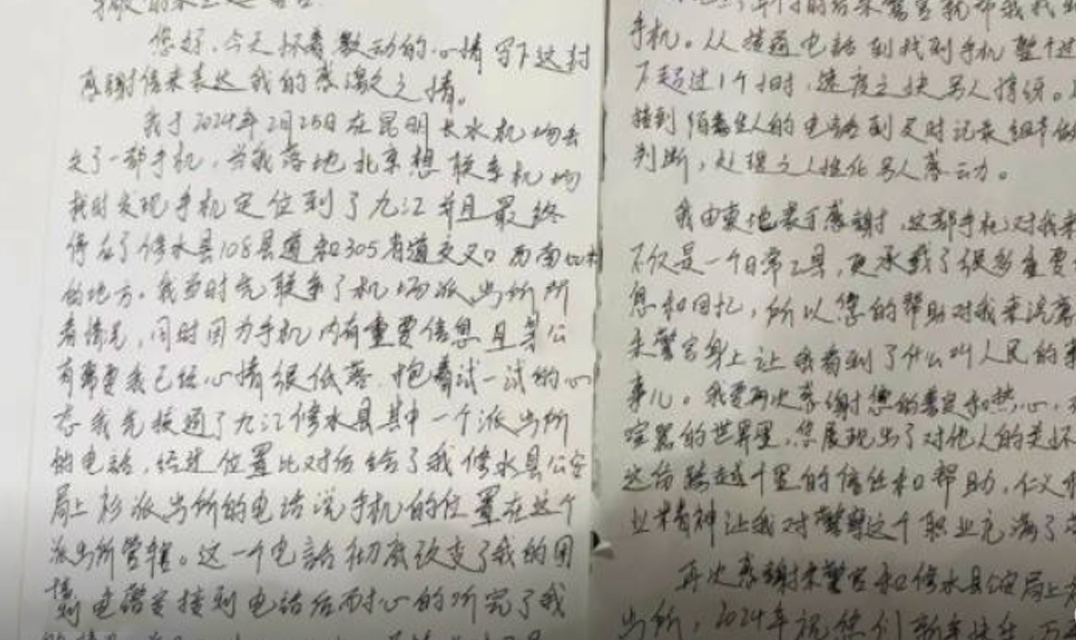 您好，今天怀着激动的心情写下这封
感谢信来表达我的感激之情。
我于2024年2月25日在昆明长水机场丢
失了一部手机，当我落地北京想联系机场
我时发现手机定位到了九江并且最终
停在了修水县108县道和305省道交叉口西南
的地方。我当时先联系了机场派出所所
看情况，同时因为手机内有重要信息且
有需要我已经心情很低落，抱着试一试的心
态我先接通了九江修水县其中一个派出所
的电话，经过位置比对后给了我修水县公安
局上杉派出所的电话说手机的位置在这个
派出所管辖。这一个电话彻底改变了我的困
境 电话接到电话后耐心的听完了我
手机。从接通电话到找到手机整个过
不超过1个小时，速度之快另人惊讶。
接到陌生人的电话到及时记录细节
判断，处理之人性化另人感动。
我由衷地表示感谢，这部手机对我来
不仅是一个日常工具，更承载了很多重要
息和回忆，所以您的帮助对我来说
朱警官身上让我看到了什么叫人民的
事儿。我要再次感谢您的善良和热心，
喧嚣的世界里，您展现出了对他人的关怀
这份跨越千里的信任和帮助，仁义
业精神让我对警察这个职业充满了
再次感谢朱警官和修水县公安局上
出所，2024年祝您们